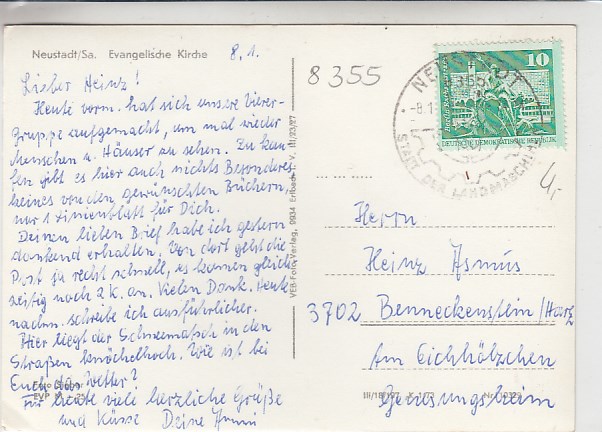 Neustadt/Sa. Evangelische Kirche 8.1.
Lieber Heinz!
Heute vorm. hat sich unsre Vierer-
gruppe aufgemacht, um mal wieder
Menschen u. Häuser zu sehen. Zu kau-
fen gibt es hier auch nichts Besonderes
keines von den gewünschten Büchern,
nur 1 Linienblatt für Dich.
Deinen lieben Brief habe ich gestern
dankend erhalten. Von dort geht die
Post ja recht schnell, es kamen gleich-
zeitig noch 2 K. an. Vielen Dank. Heute
nachm. schreibe ich ausführlicher.
Hier liegt der Schneematsch in den
Straßen knöchelhoch. Wie ist bei
Euch das Wetter?
Für heute viele herzliche Grüße
und Küsse Deine Anni
Foto
EVP M -,25
VEB Foto-Verlag, 9934 Erlbach i. V. III/23/27
8355
NEUSTADT
8355
-8.1
STADT DER LANDMASCHINEN
10
DEUTSCHE DEMOKRATISCHE REPUBLIK
4,-
Herrn
Heinz Asmus
3702 Benneckenstein/Harz
Am Eichhölzchen
Genesungsheim
III/18/197